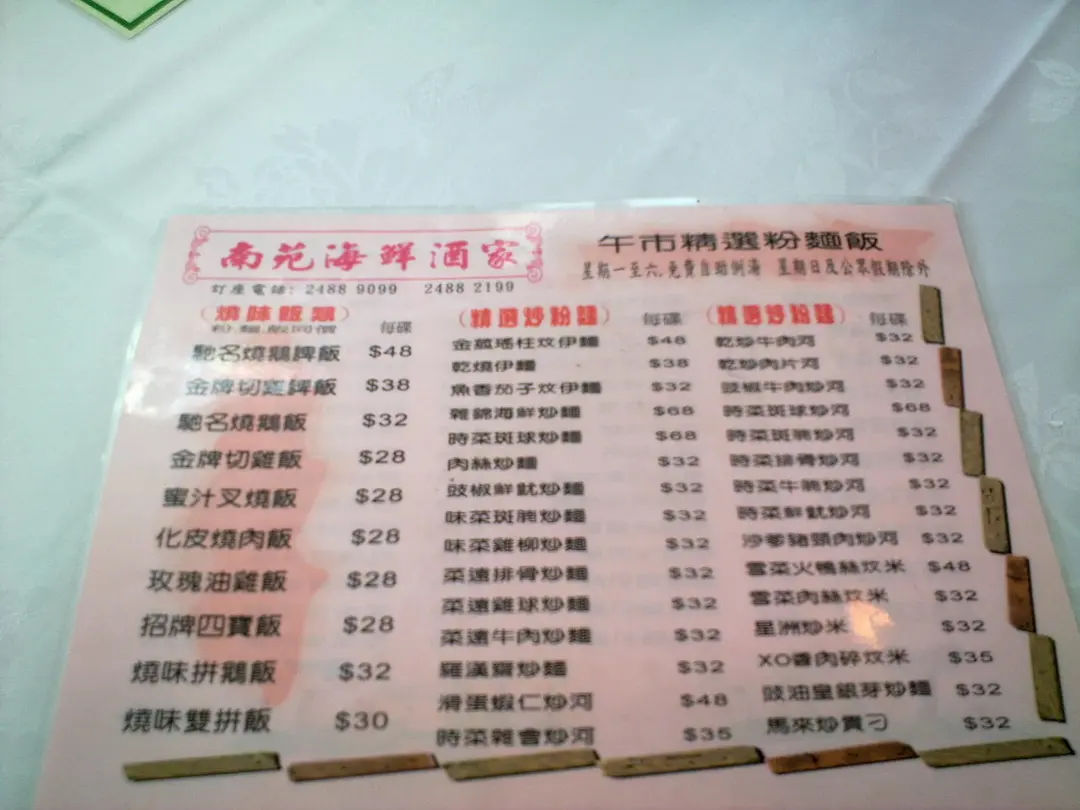 南苑海鮮酒家
訂座電話: 2488 9099 2488 2199
午市精選粉麵飯
星期一至六,免費自助例湯 星期日及公眾假期除外
(燒味飯類)
粉.麵.飯同價 每碟
馳名燒鵝髀飯 $48
金牌切雞髀飯 $38
馳名燒鵝飯 $32
金牌切雞飯 $28
蜜汁叉燒飯 $28
化皮燒肉飯 $28
玫瑰油雞飯 $28
招牌四寶飯 $28
燒味拼鵝飯 $32
燒味雙拼飯 $30
(精選炒粉麵) 每碟
金菰瑤柱炆伊麵 $48
乾燒伊麵 $38
魚香茄子炆伊麵 $32
雜錦海鮮炒麵 $68
時菜斑球炒麵 $68
肉絲炒麵 $32
豉椒鮮魷炒麵 $32
味菜斑腩炒麵 $32
味菜雞柳炒麵 $32
菜遠排骨炒麵 $32
菜遠雞球炒麵 $32
菜遠牛肉炒麵 $32
羅漢齋炒麵 $32
滑蛋蝦仁炒河 $48
時菜雜會炒河 $35
(精選炒粉麵) 每碟
乾炒牛肉河 $32
乾炒肉片河 $32
豉椒牛肉炒河 $32
時菜斑球炒河 $68
時菜斑腩炒河 $32
時菜排骨炒河 $32
時菜牛腩炒河 $32
時菜鮮魷炒河 $32
沙爹豬頸肉炒河 $32
雪菜火鴨絲炆米 $48
雪菜肉絲炆米 $32
星洲炒米 $32
XO香肉碎炆米 $35
豉油皇銀芽炒麵 $32
馬來炒貴刁 $32